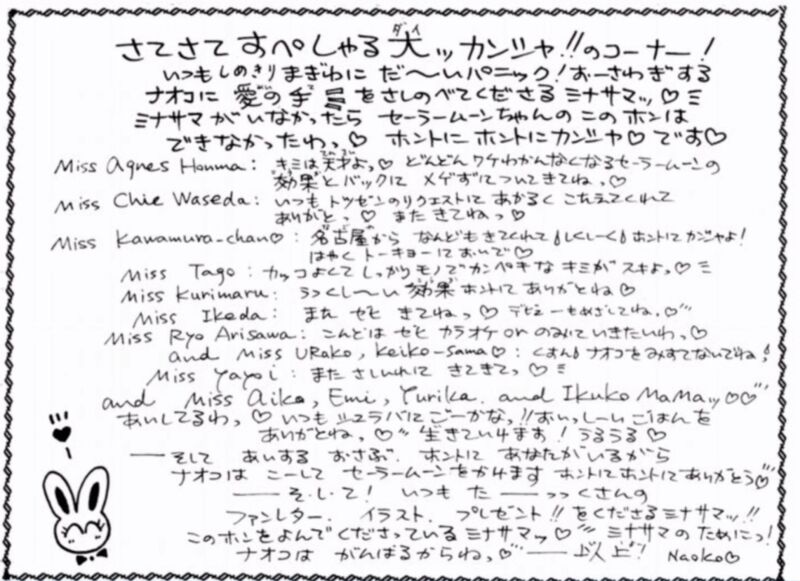 さてさて すぺしゃる 大ッカンシャ!!のコーナー!
ダイ
いつもしめきりまぎわに だ〜いパニック!おーさわぎする
ナオコに 愛の手をさしのべてくださる ミナサマッ♡
ミナサマ がいなかったら セーラームーンちゃんの このホンは
できなかったわっ♡ ホントにホントにカンシャ♡です♡
Miss Agnes Honma: キミは天才よっ♡ どんどんワケわかんなくなるセーラームーンの
効果とバックに メゲずについてきてねっ♡
Miss Chie Waseda: いつも トツゼンのリクエストに あかるく こたえてくれて
ありがとっ♡ また きてねっ♡
Miss Kawamura-chan♡: 名古屋から なんどもきてくれて しくしく ホントにカンシャよ!
はやくトーキョーにおいで♡
Miss Tago: カッコよくて しっかりモノで カンペキな キミが スキよっ♡
Miss Kurimaru: うつくし〜い 効果 ホントに ありがとね♡
Miss Ikeda: また ゼヒ きてねっ♡ デビューもめざしてね。♡
Miss Ryo Arisawa: こんどは ゼヒ カラオケ or のみにいきたいわっ♡
and Miss URako, Keiko-sama♡: くすん ナオコをみすてないでね
Miss Yayoi: また さしいれに きてきてっ♡
and Miss Aiko, Emi, Yurika, and Ikuko MaMaッ♡♡
あいしてるわっ♡ いつもシュラバにごーかなっ!!おいっしーい ごはんを
ありがとね。♡ 生きていけます! うるうる♡
──そして あいする おさぶ. ホントに あなたがいるから
ナオコは こーして セーラームーンを かけます ホントにホントに ありがとう♡
── そ・し・て! いつも た──っっくさんの
ファンレター. イラスト. プレゼント!!をくださる ミナサマッ!!
このホンをよんでくださっている ミナサマッ♡ ミナサマのためにっ!
ナオコは がんばるからねっ♡ ──以上! Naoko♡